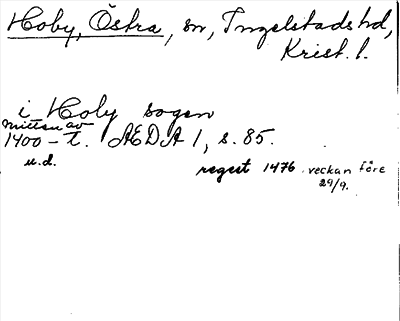 Hoby, Östra, sn, Ingelstads hd,
Krist. l.
i Hoby sogen
mitten av
1400-t. AEDA 1, s. 85.
u.d.
regest 1476 . veckan före
29/9.